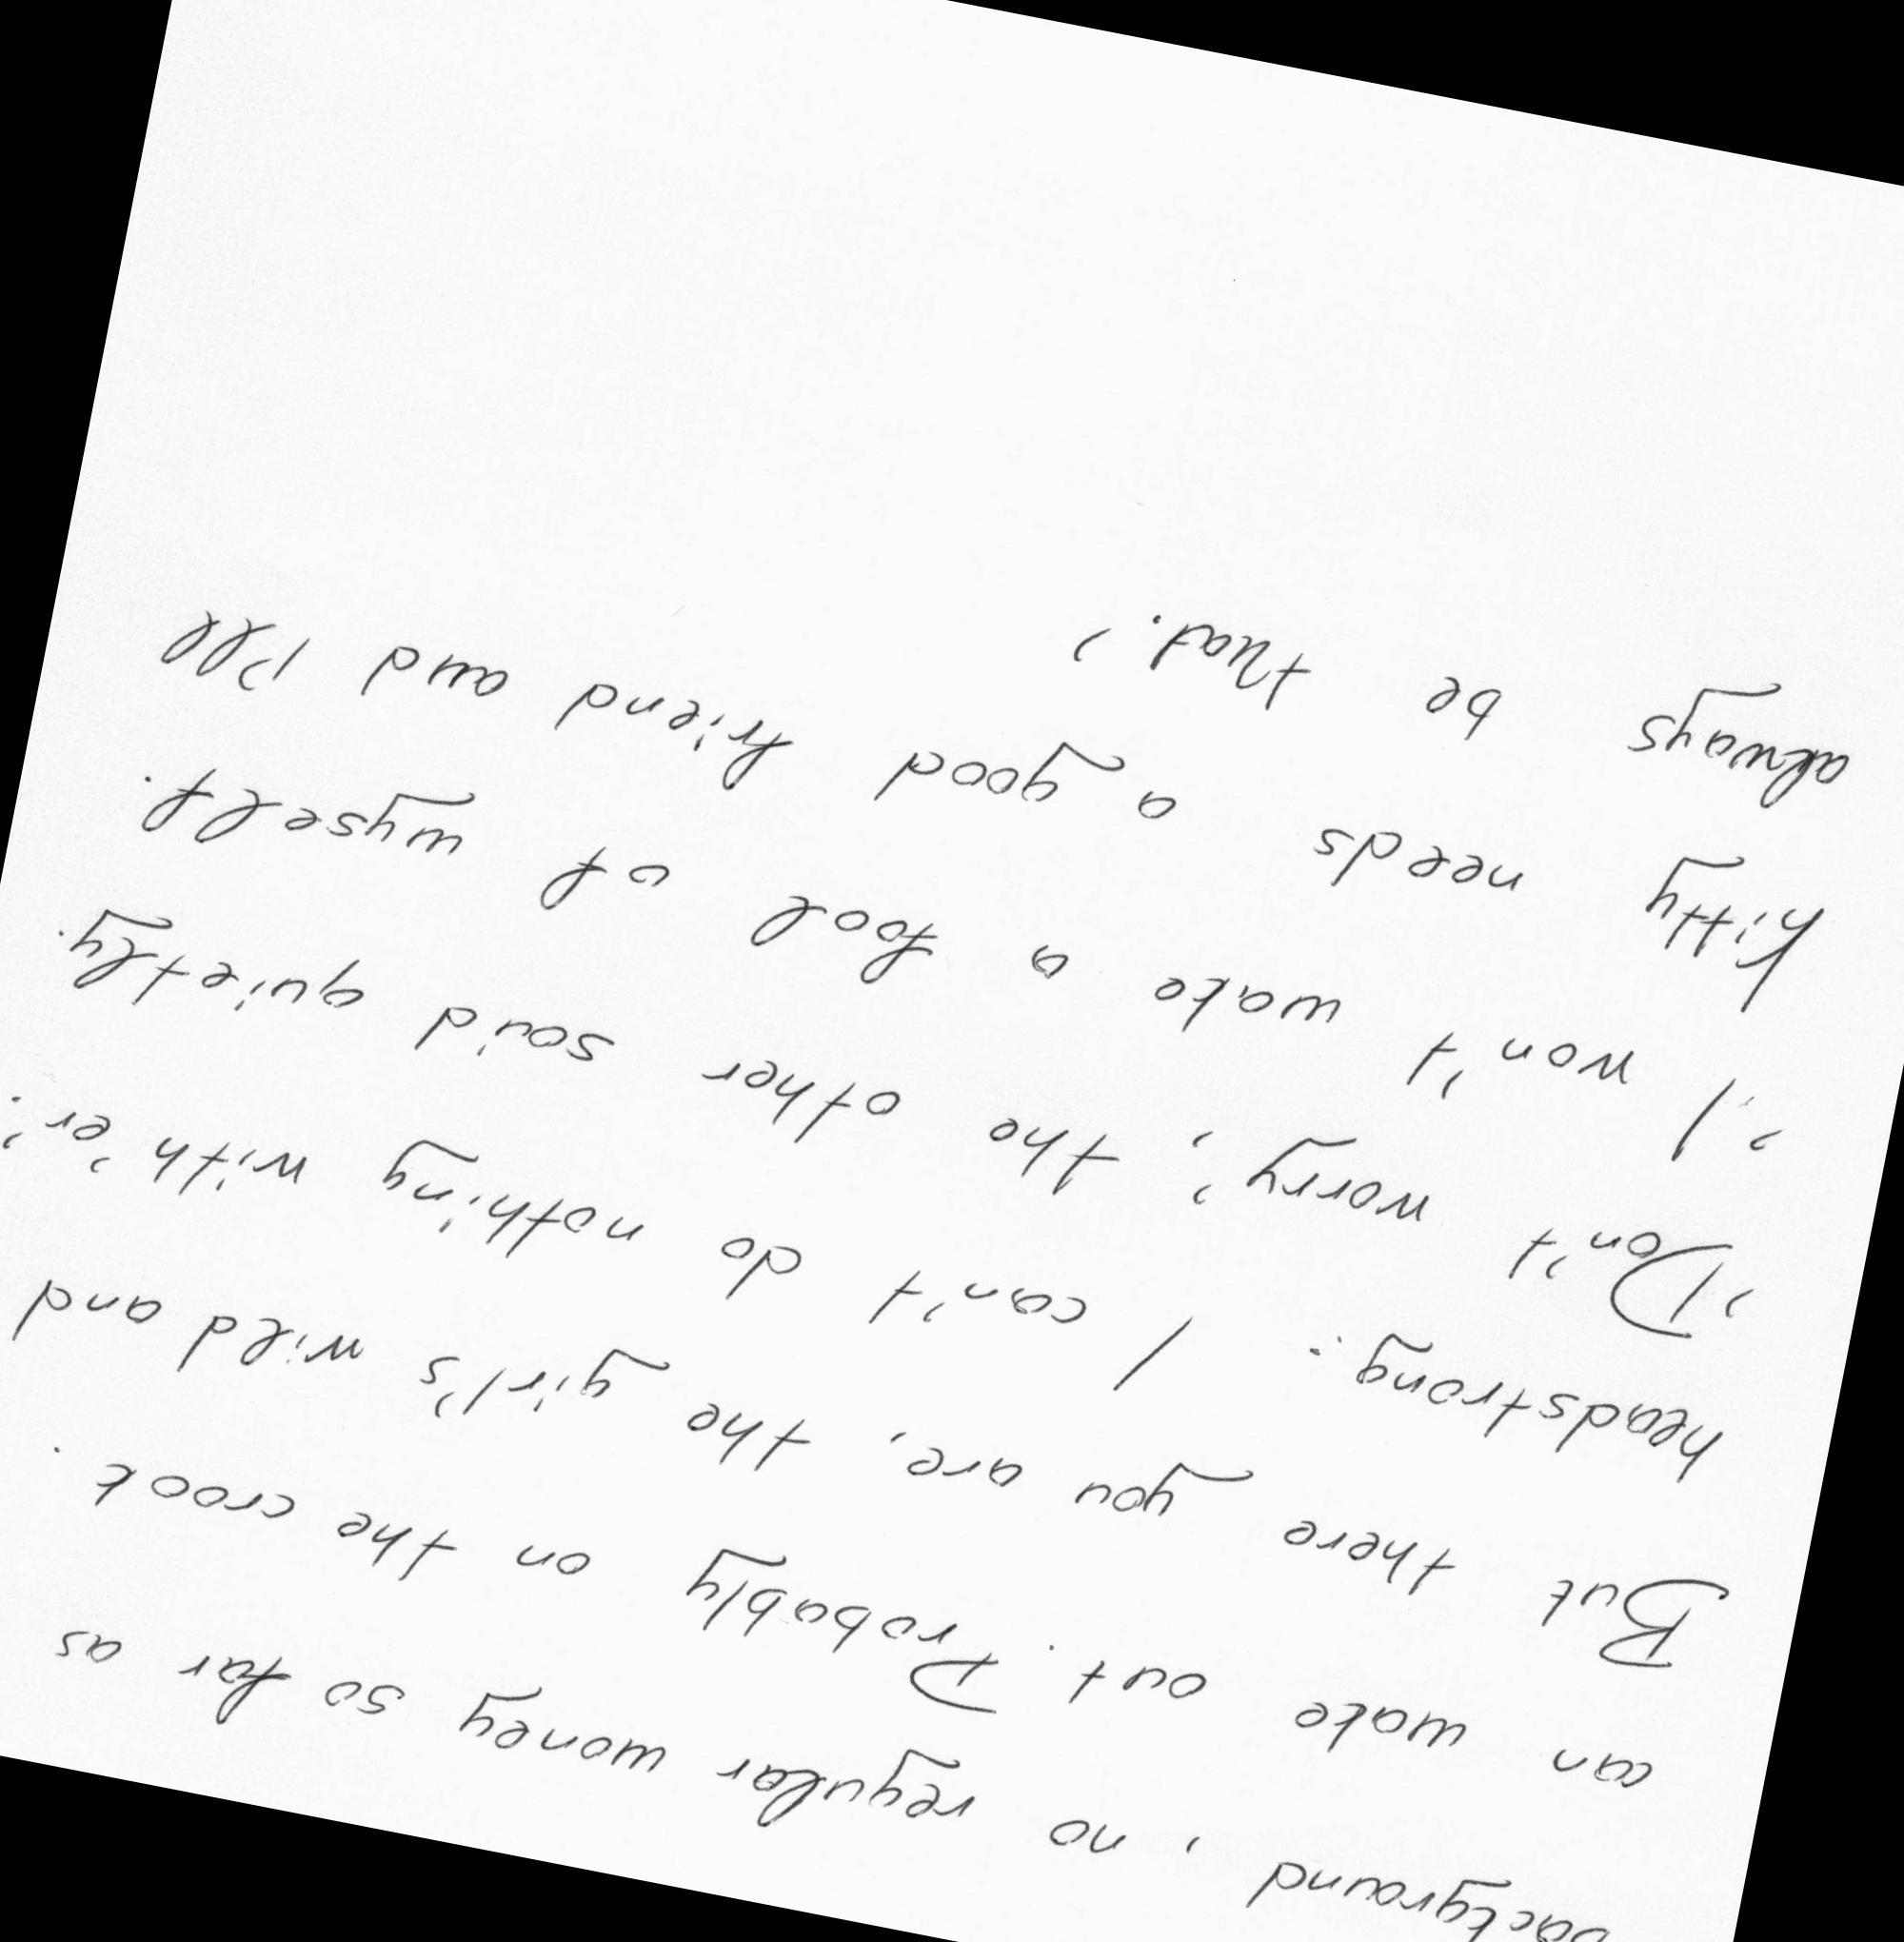 background, no regular money so far as
can make out. Probably on the crook.
But there you are, the girl's wild and
headstrong. I can't do nothing with 'er.'
'Don't worry', the other said quietly.
'I won't make a fool of myself.
Kitty needs a good friend and I'll
always be that.'